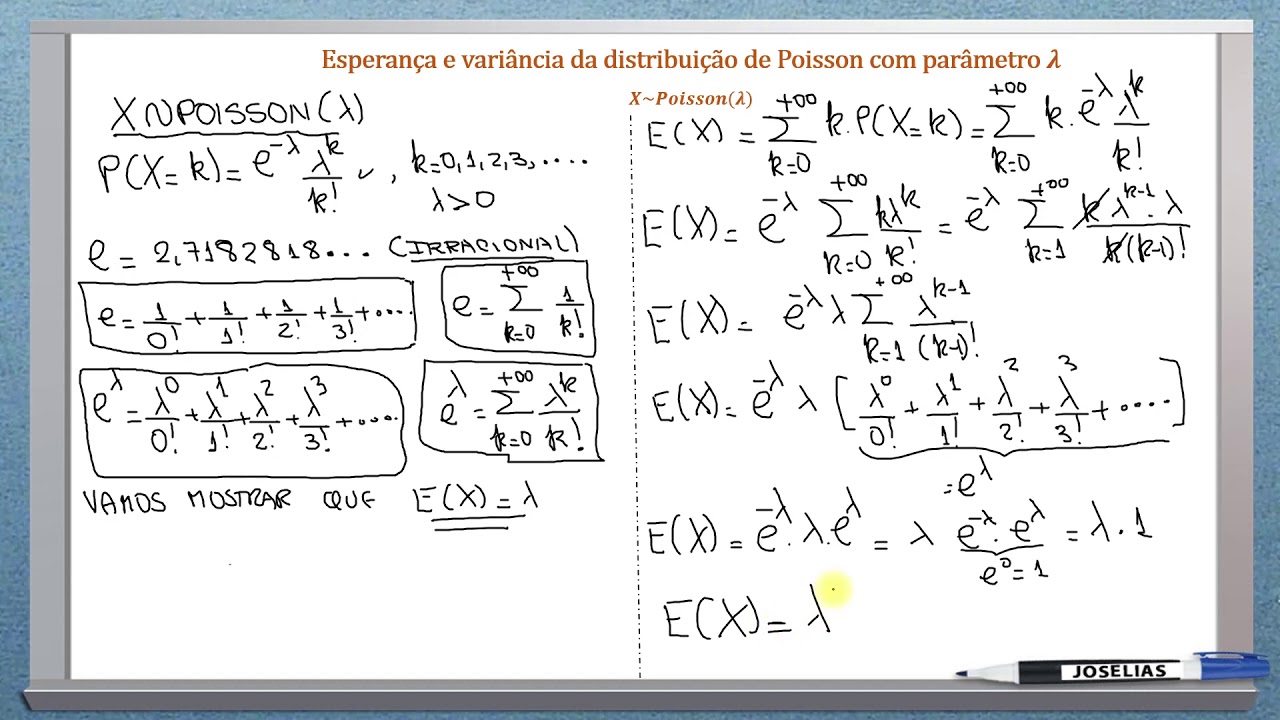 Esperança e variância da distribuição de Poisson com parâmetro λ
X~Poisson(λ)
X ∼ POISSON(λ)
P(X=k) = e^{-λ} λ^k/k! , k=0,1,2,3,....
λ>0
e = 2,7182818... (IRRACIONAL)
e = 1/0! + 1/1! + 1/2! + 1/3! + ....
e = ∑_{k=0}^{+∞} 1/k!
e^λ = λ^0/0! + λ^1/1! + λ^2/2! + λ^3/3! + ....
e^λ = ∑_{k=0}^{+∞} λ^k/k!
VAMOS MOSTRAR QUE E(X) = λ
E(X) = ∑_{k=0}^{+∞} k.P(X=k) = ∑_{k=0}^{+∞} k.e^{-λ} λ^k/k!
E(X) = e^{-λ} ∑_{k=0}^{+∞} kλ^k/k! = e^{-λ} ∑_{k=1}^{+∞} k λ^{k-1}.λ/k(k-1)!
E(X) = e^{-λ} λ ∑_{k=1}^{+∞} λ^{k-1}/(k-1)!
E(X) = e^{-λ} λ [λ^0/0! + λ^1/1! + λ^2/2! + λ^3/3! + ....]
= e^λ
E(X) = e^{-λ}.λ.e^λ = λ e^{-λ}.e^λ = λ.1
e^0 = 1
E(X) = λ
JOSELIAS